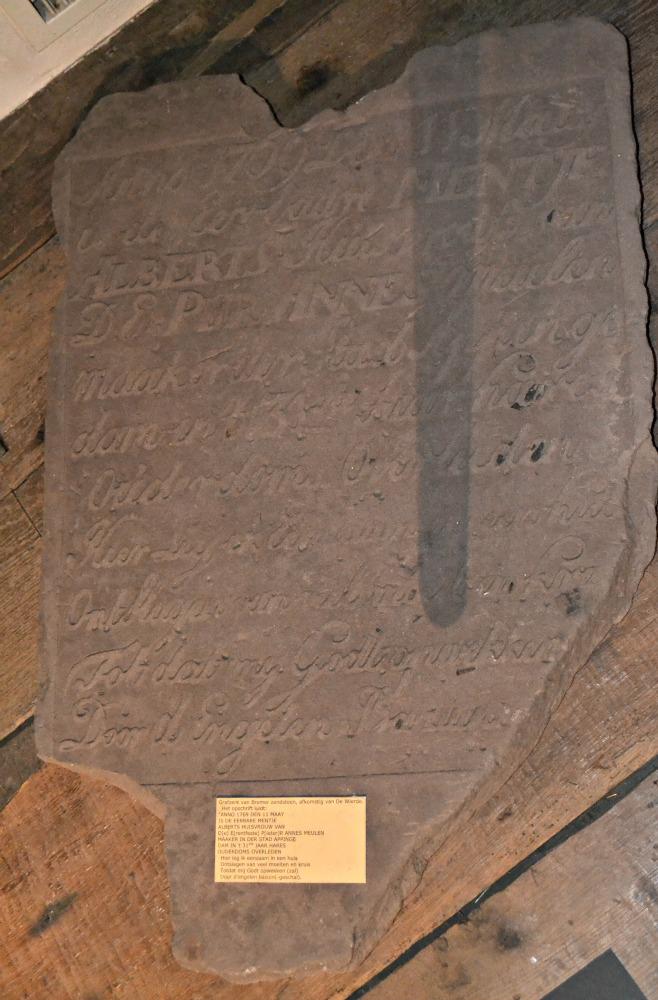 Anno 1769 Den 11 Maÿ
is de eerbaare MENTJE
ALBERTS Huisvrouw van
D E. P:R. ANNES meulen
maaker in de Stad appinge
dam in t 31ste Jaar Hares
Ouderdoms Overleden
Hier leg ik eensaam in een huis
Ontslagen van veel moeiten en kruis
Totdat my Godt opwekken
Door d' Engelen Basuin
Grafzerk van Bremer zandsteen, afkomstig van De Wierde.
Het opschrift luidt:
"ANNO 1769 DEN 11 MAAY
IS DE EERBARE MENTJE
ALBERTS HUISVROUW VAN
D(e) E(rentfeste) P(ieter)R ANNES MEULEN
MAAKER IN DER STAD APPINGE
DAM IN 'T 31STE JAAR HARES
OUDERDOMS OVERLEDEN
Hier leg ik eensaam in een huis
Ontslagen van veel moeiten en kruis
Totdat mij Godt opwekken (zal)
Door d'engelen basuin(-geschal).